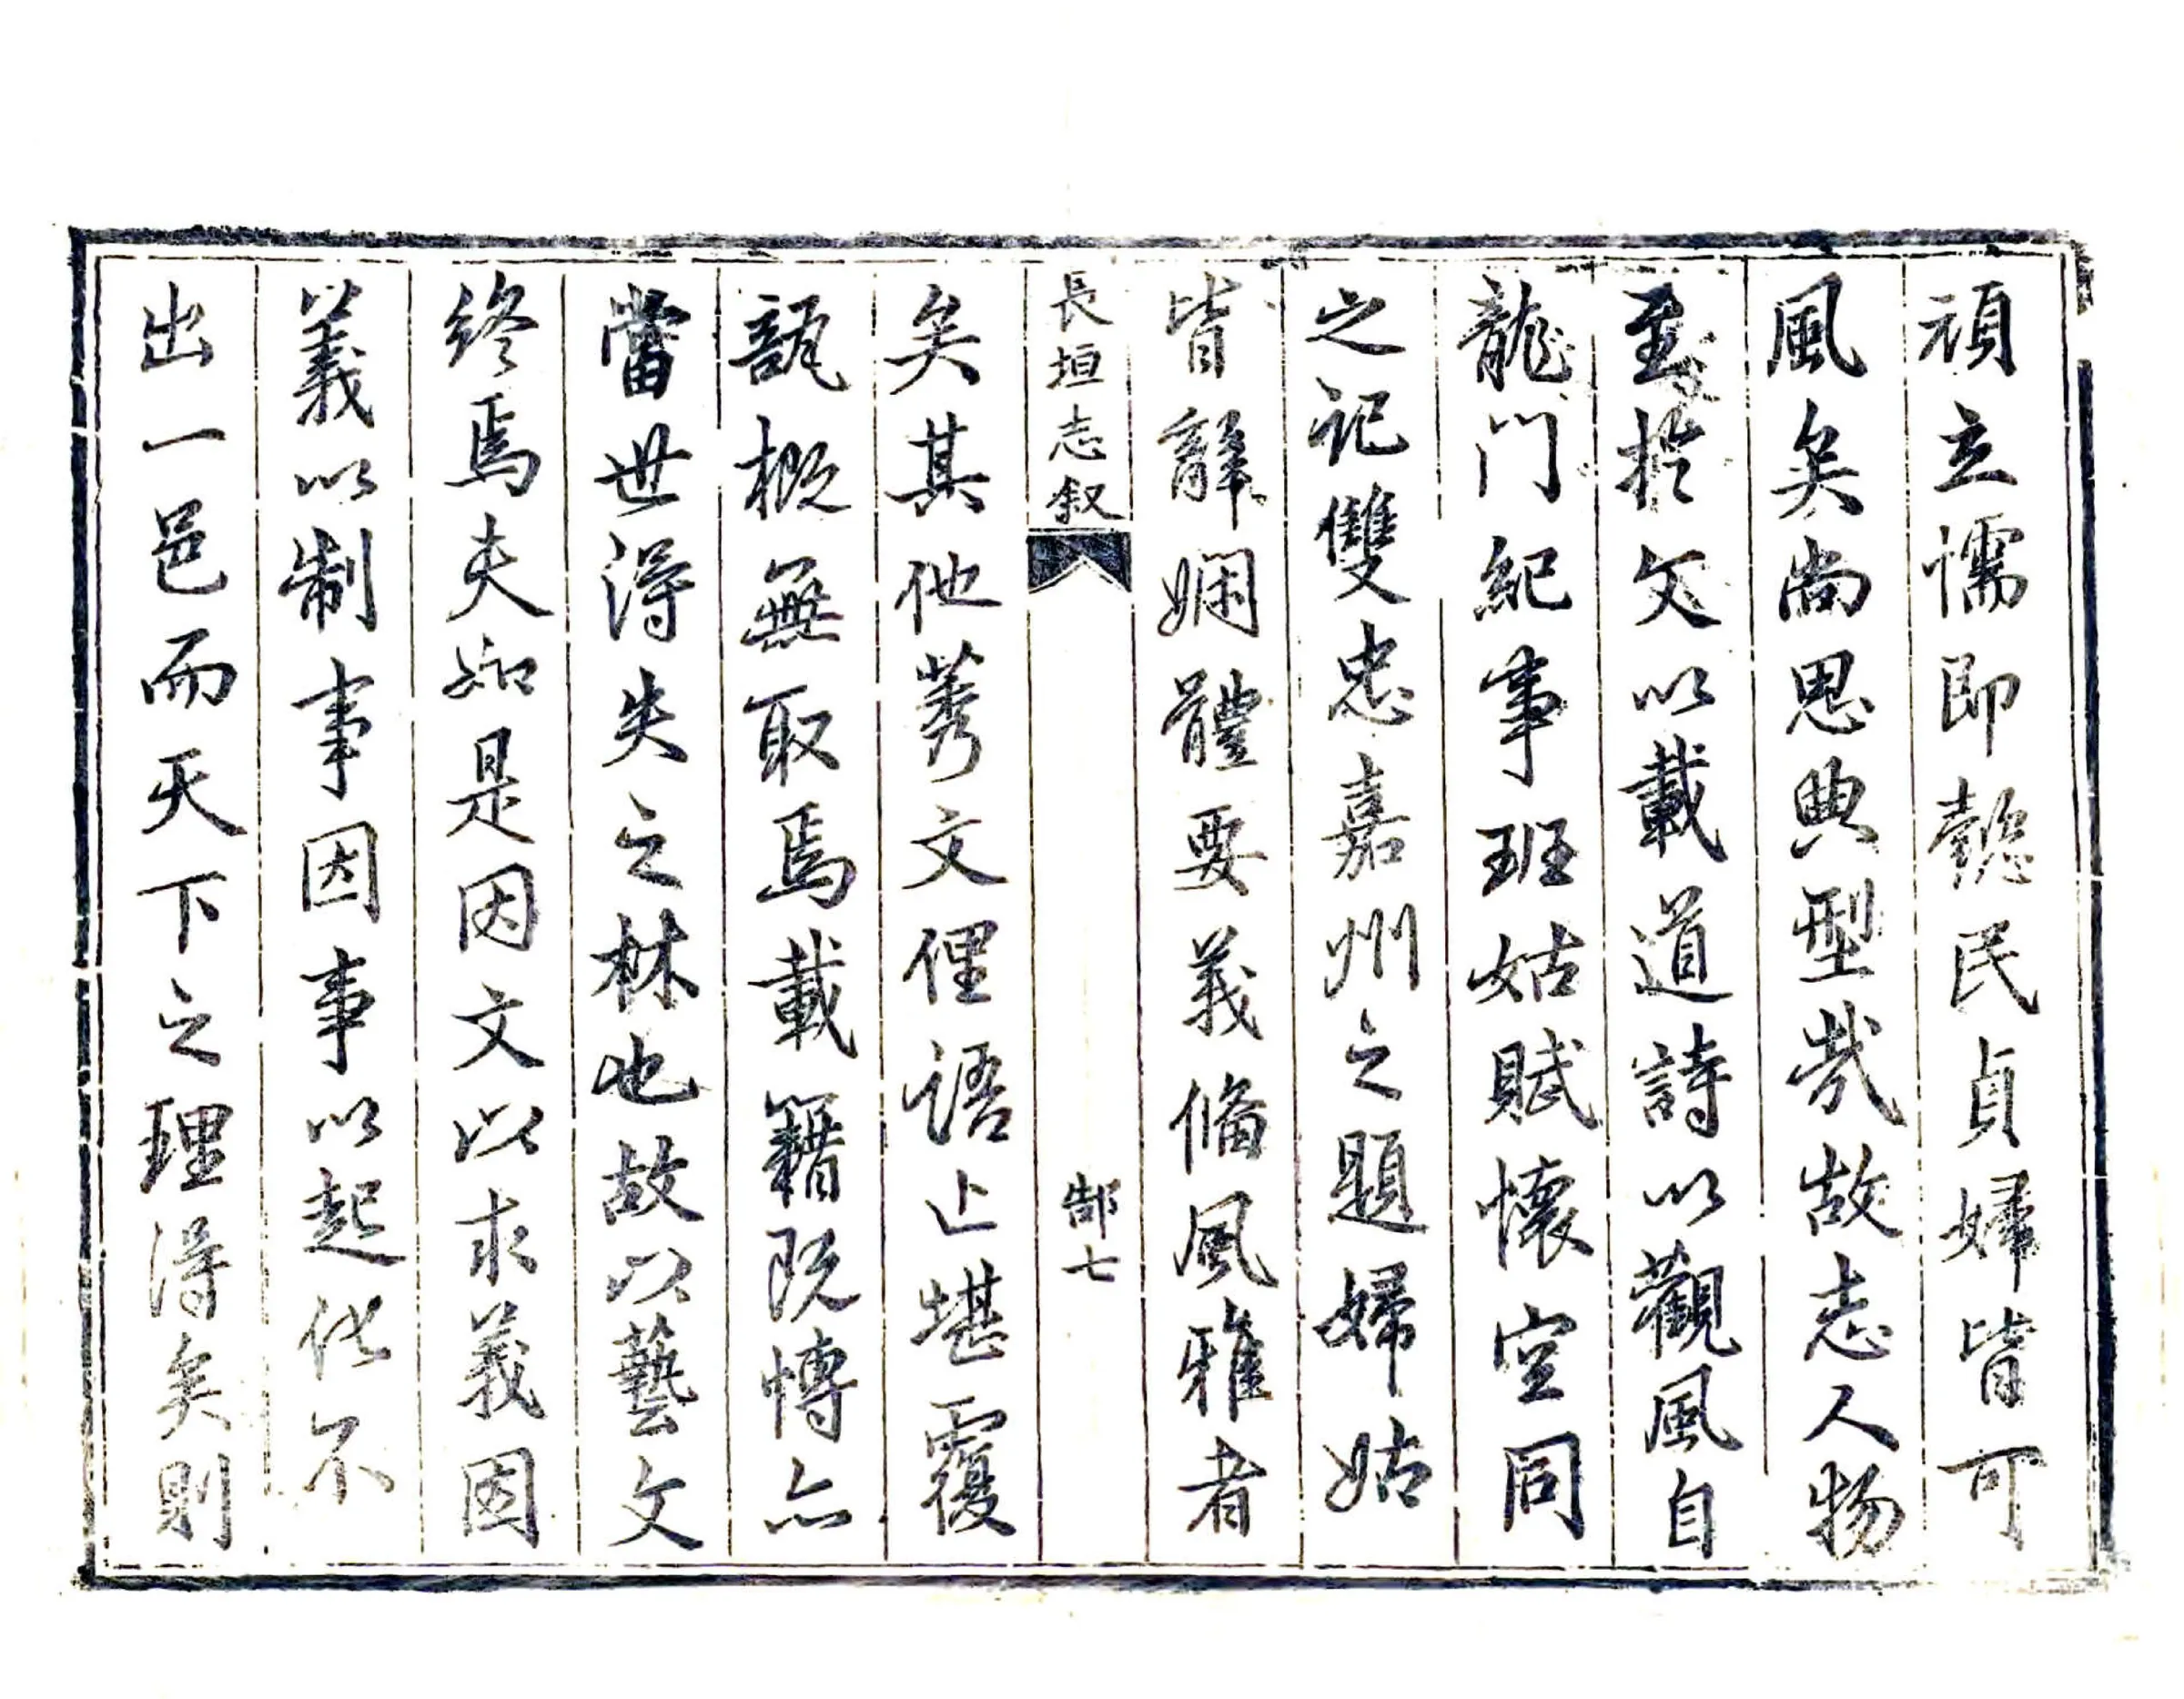 頑立懦即懿民貞婦皆可
風矣尚思典型哉故志人物
至於文以載道詩以觀風自
龍門紀事班姑賦懷空同
之記雙忠嘉州之題婦姑
皆辭嫻體要義偹風雅者
長垣志叙 郜七
矣其他莠文俚語止堪覆
瓿概無取焉載籍既博亦
當世得失之林也故以藝文
終焉夫如是因文以求義因
義以制事因事以起化不
出一邑而天下之理得矣則